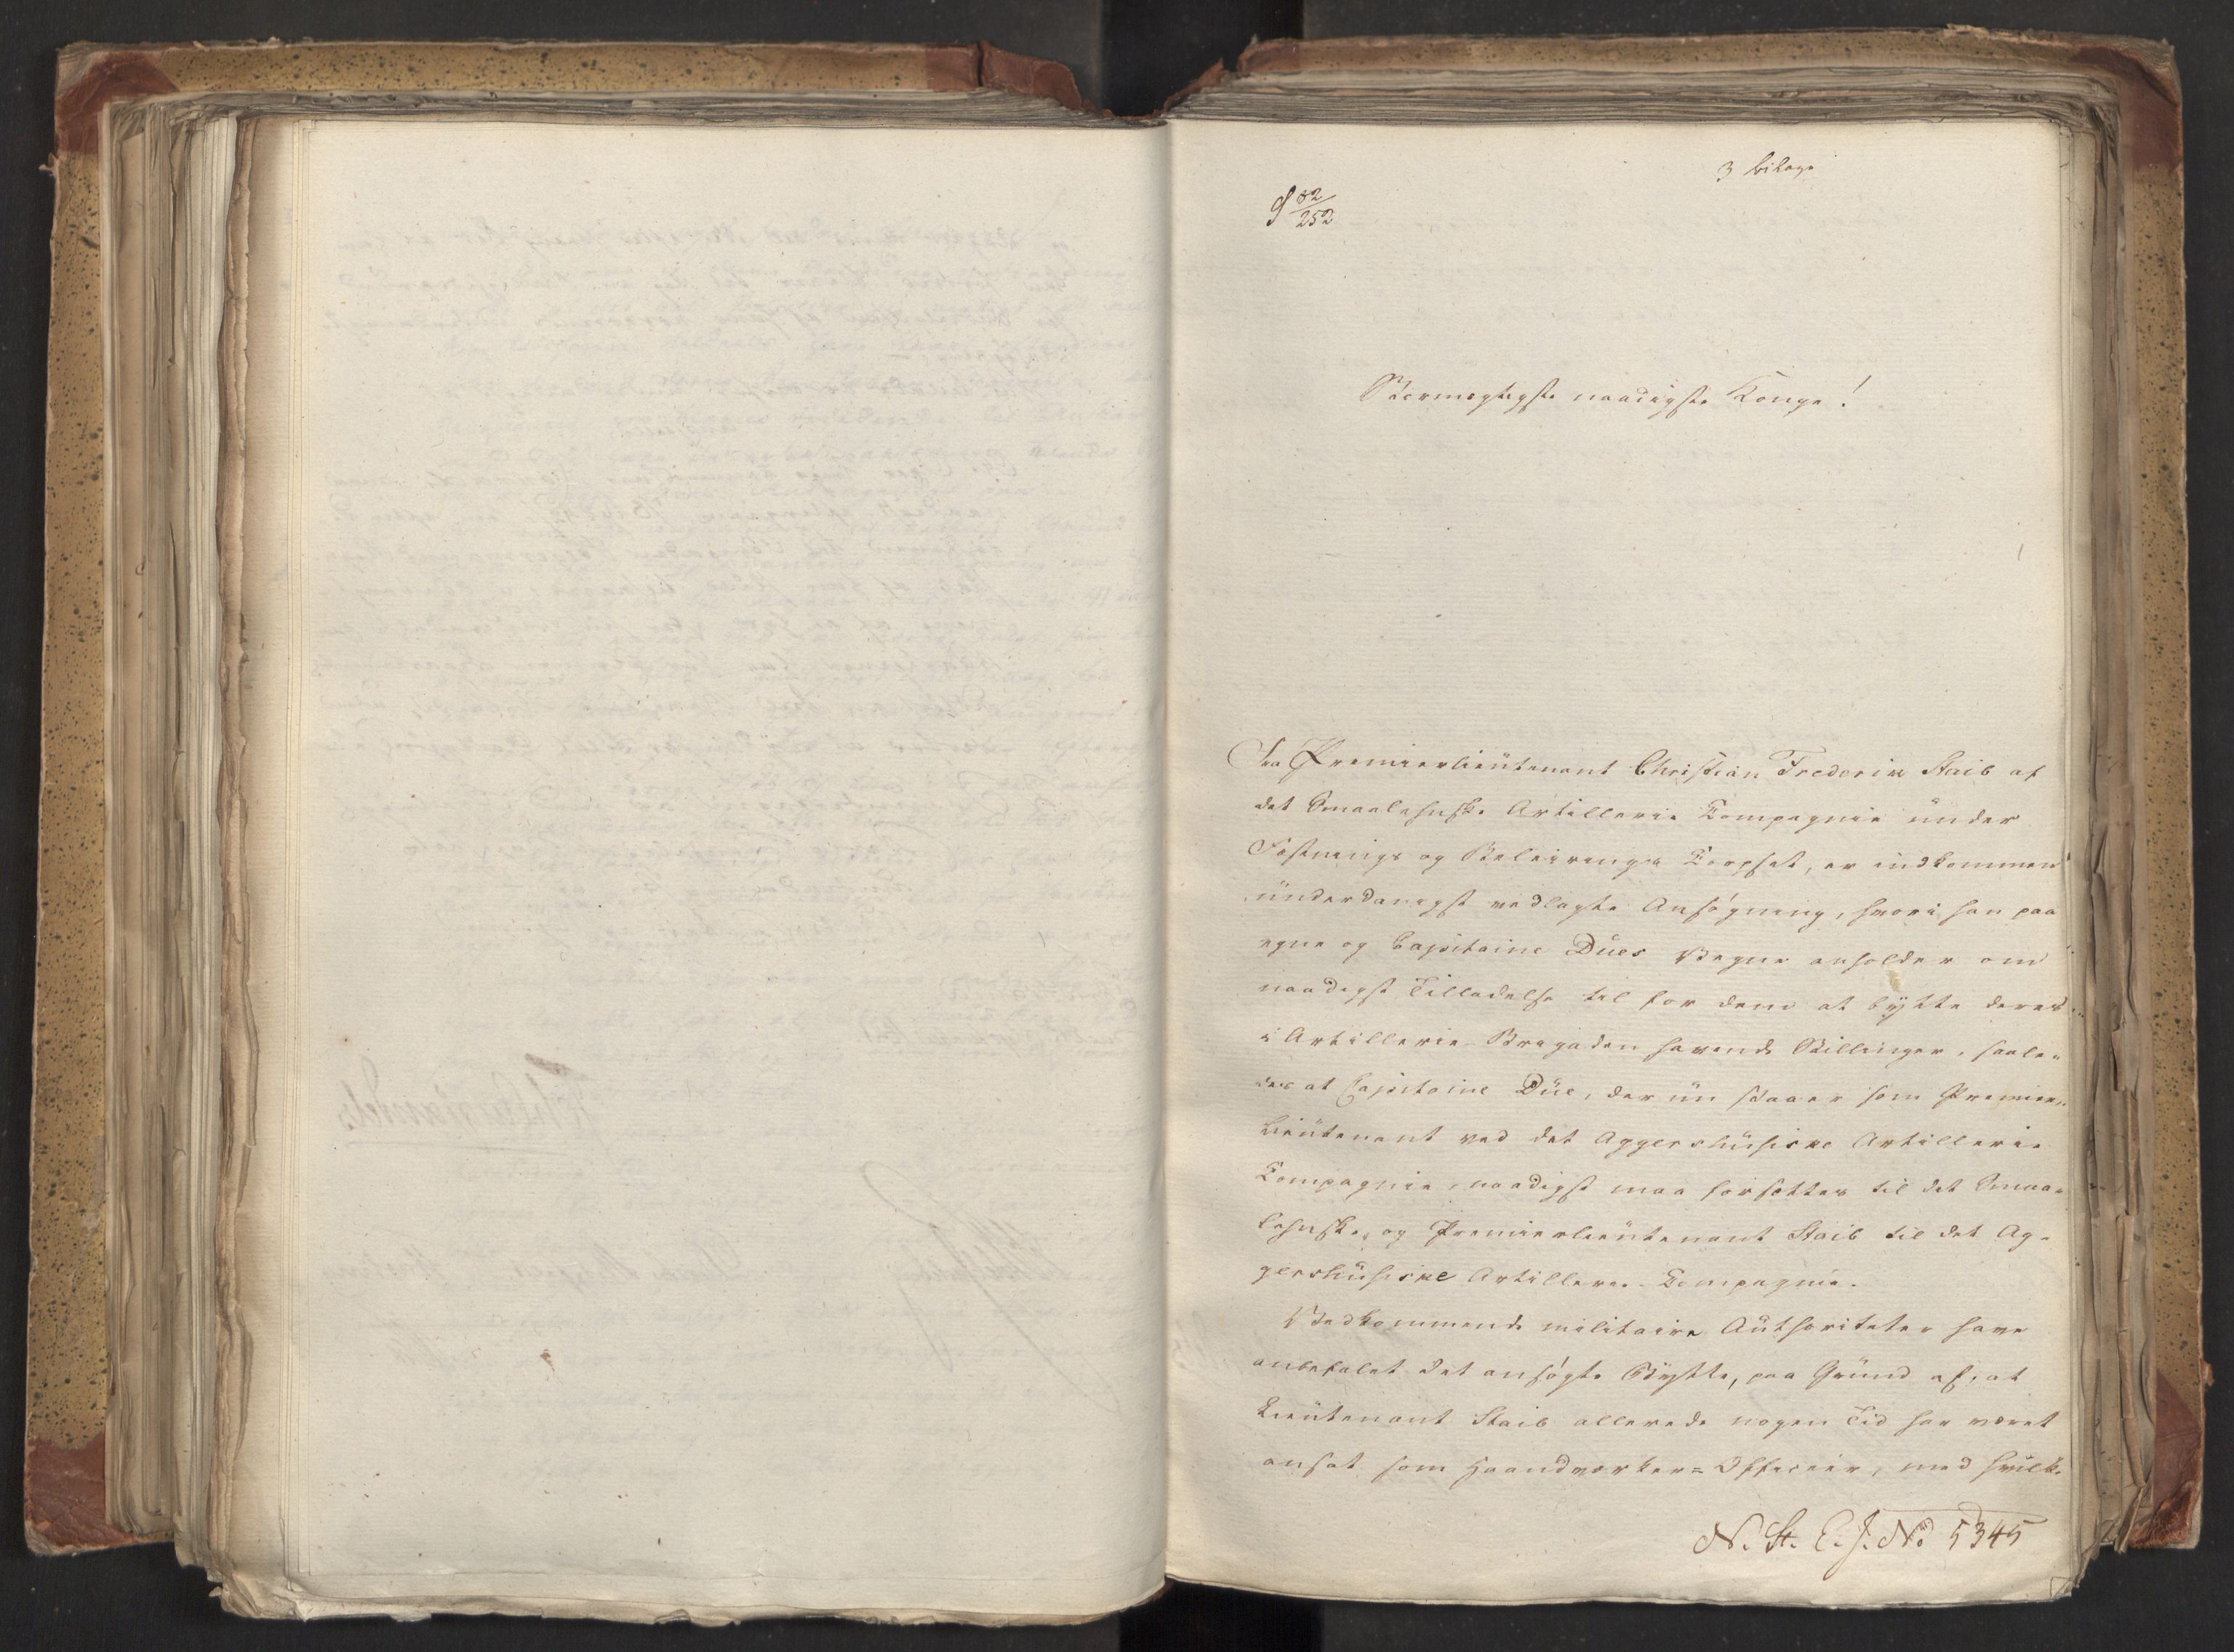 3 bilage
S 32/252
Stormægtigste naadigste Konge!
Fra Premierlieutenant Christian Frederik Staib af
det Smaalehnske Artillerie Compagnie under
Fæstnings og Beleirings Corpset, er indkommen
underdanigst vedlagte Ansøgning, hvori han paa
egne og Capitaine Dües Vegne anholder om
naadigst Tilladelse til for dem at bytte deres
i Artillerie-Brigaden havende Stillinger, saale-
des at Capitaine Düe, der nu staaer som Premier-
lieutenant ved det Aggershusiske Artillerie
Compagnie, naadigst maa forsættes til det Smaa-
lehnske, og Premierlieutenant Staib til det Ag-
gershusiske Artillerie-Compagnie.
Vedkommende militaire Authoriteter have
anbefalet det ansøgte Bytte, paa Grund af, at
Lieutenant Staib allerede nogen Tid har været
ansat som Haandværker-Officeer, med hvilke
N. St. E. J. No 5345